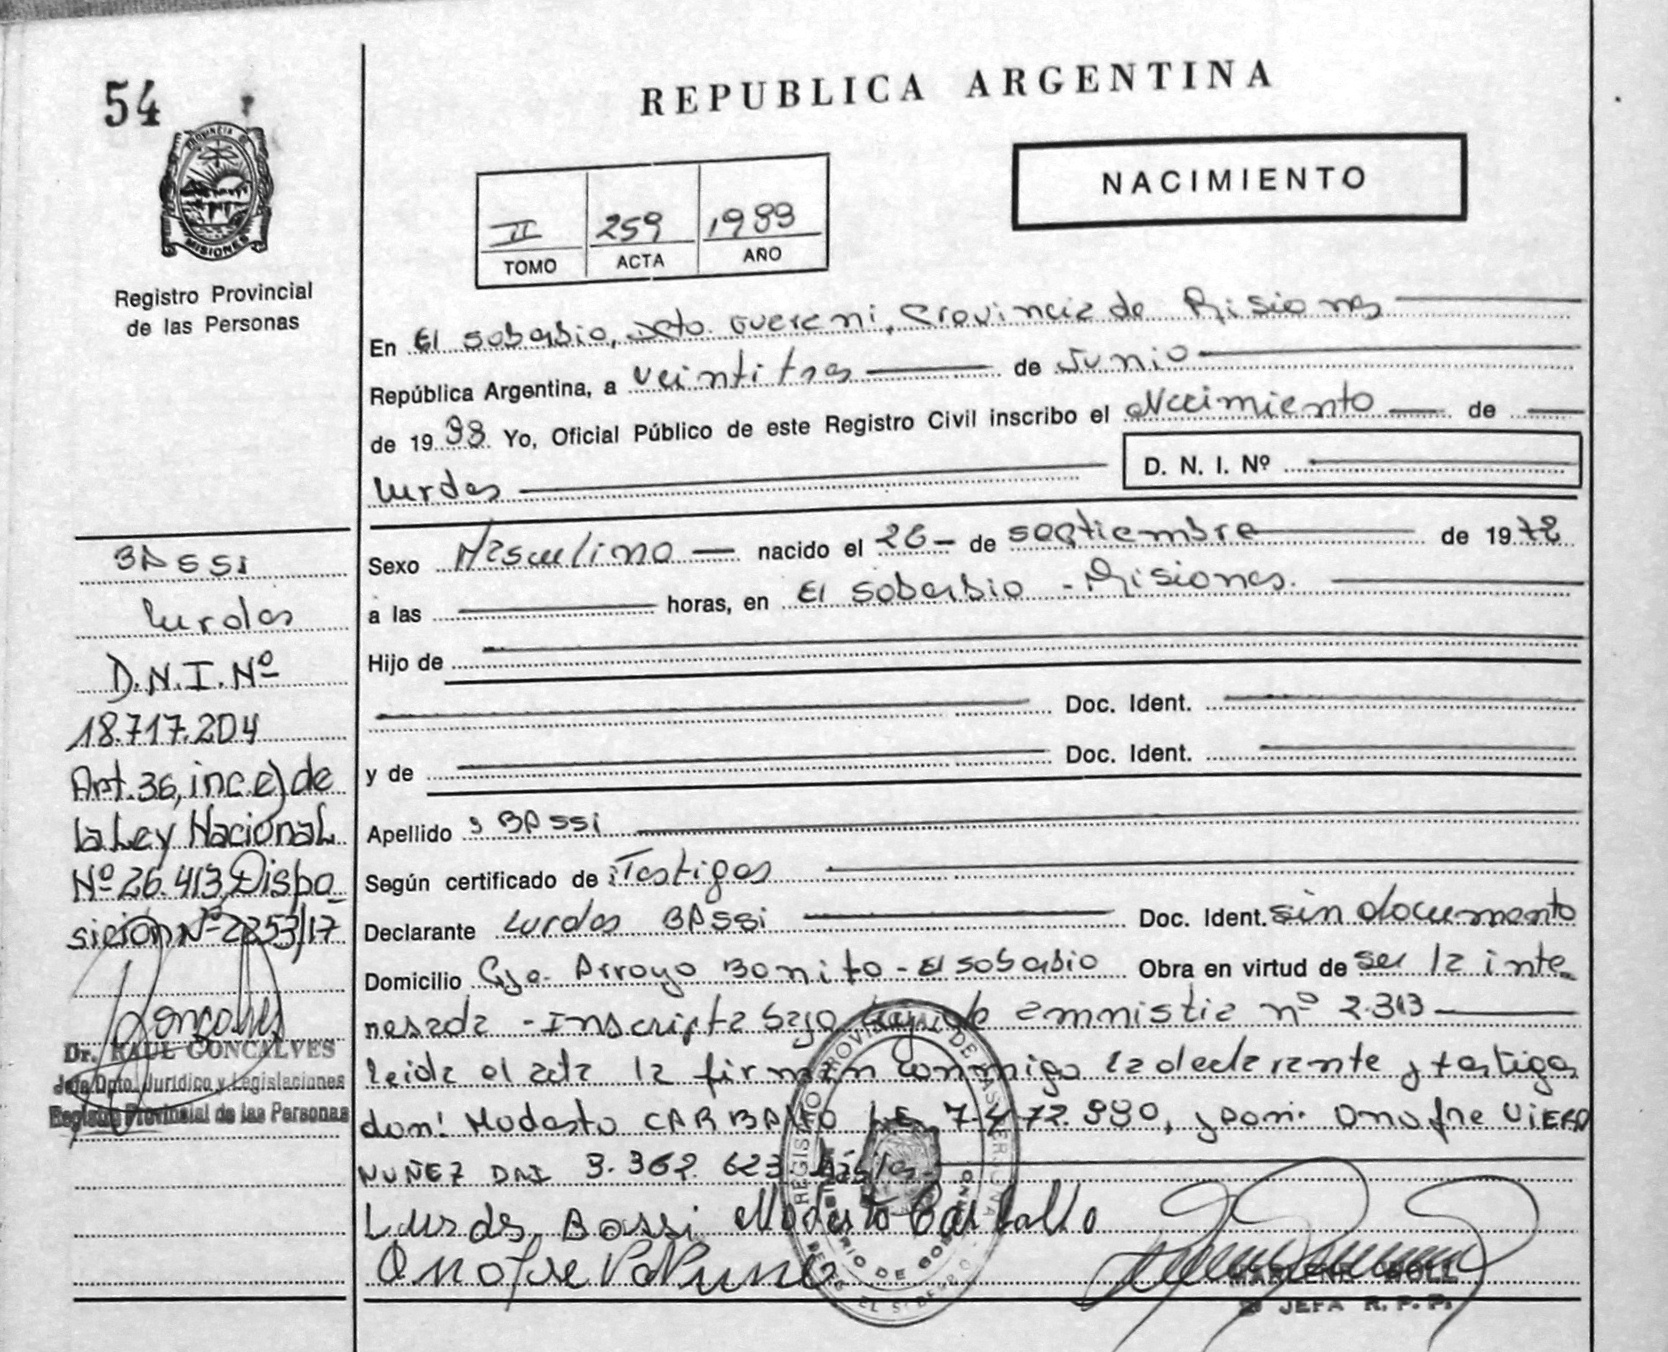 54
PROVINCIA
MISIONES
Registro Provincial
de las Personas
REPUBLICA ARGENTINA
NACIMIENTO
II 259 1989
TOMO ACTA AÑO
En El soberbio, Dto. Guarani, Provincia de Misiones
República Argentina, a veintitres de Junio
de 19 89 Yo, Oficial Público de este Registro Civil inscribo el Nacimiento de
Lurdes
D. N. I. Nº
Sexo Masculino nacido el 26 de septiembre de 19 72
a las horas, en El soberbio - Misiones.
Hijo de
Doc. Ident.
y de Doc. Ident.
Apellido BASSI
Según certificado de Testigos
Declarante Lurdes BASSI Doc. Ident. sin documento
Domicilio Arroyo Bonito - El soberbio Obra en virtud de ser la inte
resada - Inscripta bajo ley de amnistia nº 2.313
leida el acta la firman conmigo la declarante y testigos
don: Modesto CARBALLO 7.472.990, y don: Onofre VIERA
NUÑEZ DNI 3.362.623
Lurdes Bassi Modesto Carballo
Onofre
MARLENE BOLL
JEFA R.P.P.
BASSI
Lurdes
D.N.I. Nº
18.717.204
Art. 36, inc. e) de
la Ley Nacional
Nº 26.413, Dispo
sición Nº 2253/17
Goncalves
Dr. RAUL GONCALVES
Jefe Dpto. Jurídico y Legislaciones
Registro Provincial de las Personas
REGISTRO PROVINCIAL DE LAS PERSONAS
MINISTERIO DE GOBIERNO